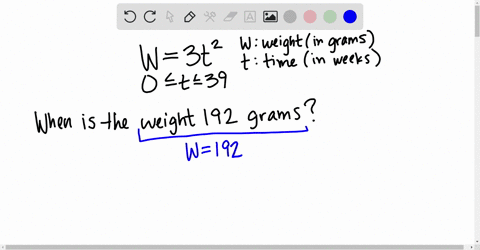 W = 3t² W: weight (in grams)
0 ≤ t ≤ 39 t: time (in weeks)
When is the weight 192 grams?
W = 192